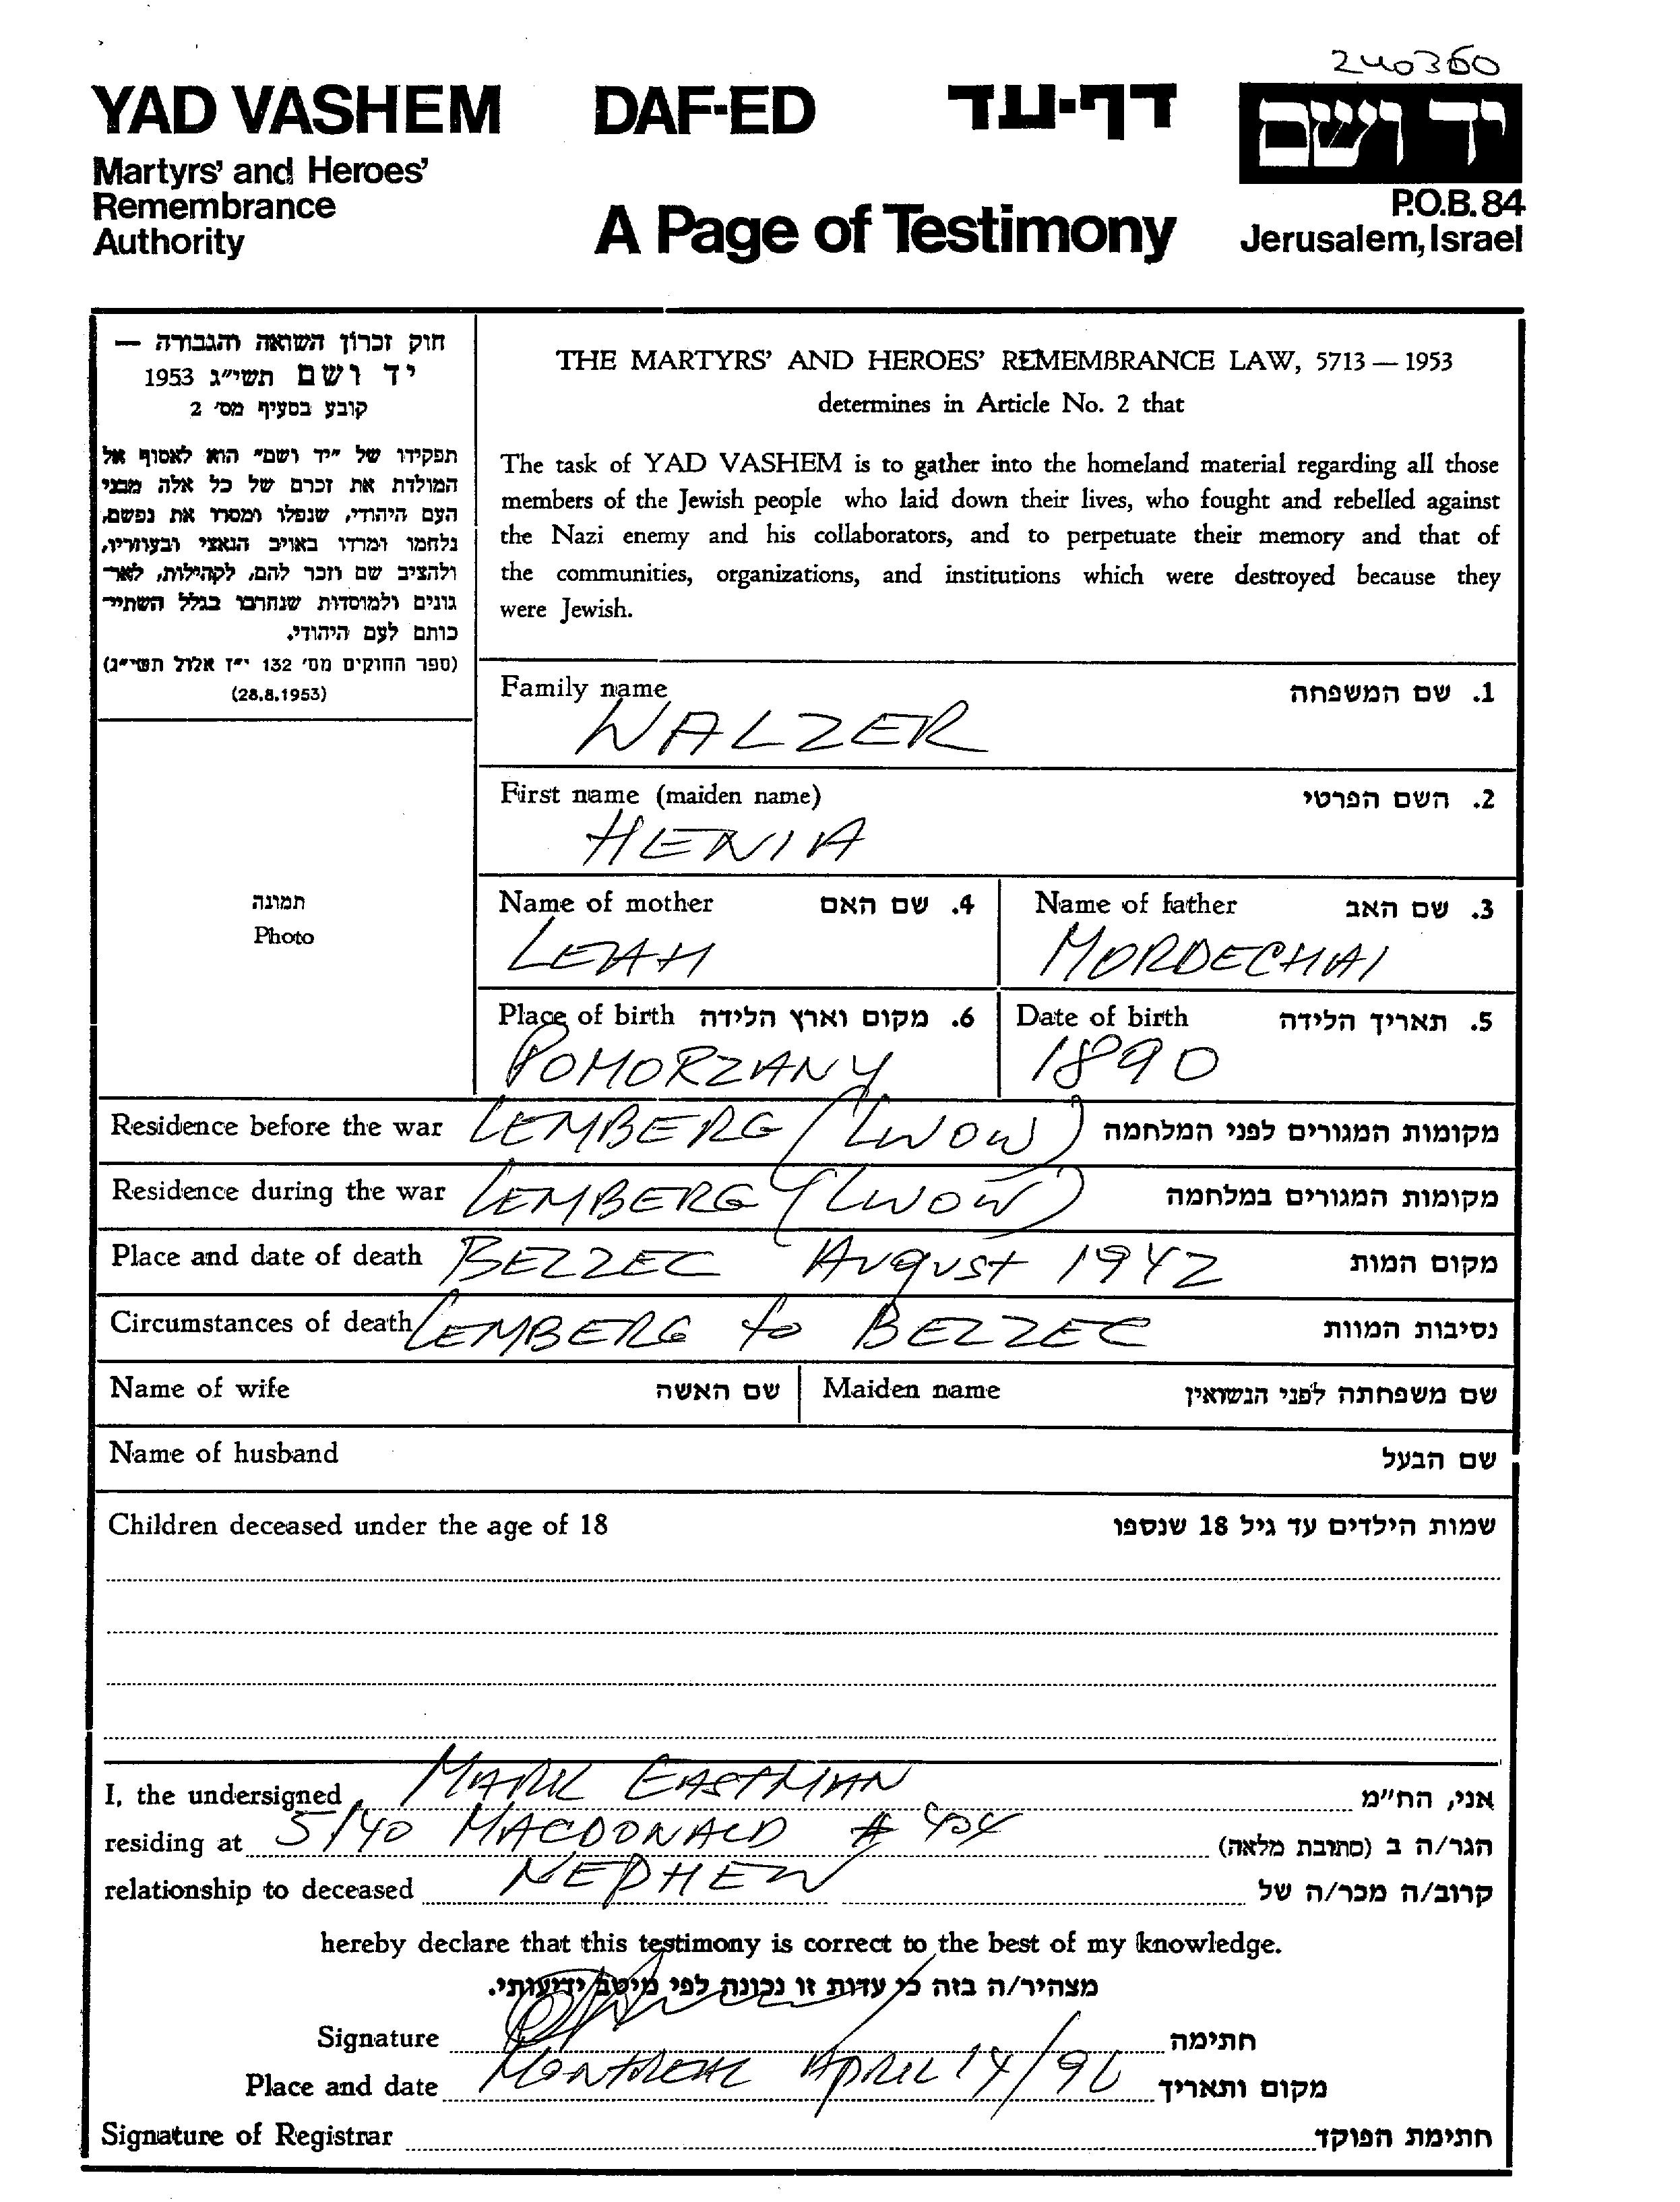 240360
YAD VASHEM DAF-ED דף-עד יד ושם
Martyrs' and Heroes'
Remembrance
Authority
A Page of Testimony
P.O.B. 84
Jerusalem, Israel
חוק זכרון השואה והגבורה —
יד ושם תשי"ג 1953
קובע בסעיף מס' 2
תפקידו של "יד ושם" הוא לאסוף אל
המולדת את זכרם של כל אלה מבני
העם היהודי, שנפלו ומסרו את נפשם,
נלחמו ומרדו באויב הנאצי ובעוזריו,
ולהציב שם וזכר להם, לקהילות, לאר-
גונים ולמוסדות שנחרבו בגלל השתיי-
כותם לעם היהודי.
(ספר החוקים מס' 132 י"ז אלול תשי"ג)
(28.8.1953)
THE MARTYRS' AND HEROES' REMEMBRANCE LAW, 5713 — 1953
determines in Article No. 2 that
The task of YAD VASHEM is to gather into the homeland material regarding all those
members of the Jewish people who laid down their lives, who fought and rebelled against
the Nazi enemy and his collaborators, and to perpetuate their memory and that of
the communities, organizations, and institutions which were destroyed because they
were Jewish.
תמונה
Photo
Family name 1. שם המשפחה
WALZER
First name (maiden name) 2. השם הפרטי
HENIA
Name of mother 4. שם האם Name of father 3. שם האב
LEAH MORDECHAI
Place of birth 6. מקום וארץ הלידה Date of birth 5. תאריך הלידה
POMORZANY 1890
Residence before the war LEMBERG (LWOW) מקומות המגורים לפני המלחמה
Residence during the war LEMBERG (LWOW) מקומות המגורים במלחמה
Place and date of death BEZZEC August 1942 מקום המות
Circumstances of death LEMBERG to BEZZEC נסיבות המוות
Name of wife שם האשה Maiden name שם משפחתה לפני הנשואין
Name of husband שם הבעל
Children deceased under the age of 18 שמות הילדים עד גיל 18 שנספו
I, the undersigned MARK EASTMAN אני, הח"מ
residing at 5140 MACDONALD # 404 הגר/ה ב (כתובת מלאה)
relationship to deceased NEPHEW קרוב/ה מכר/ה של
hereby declare that this testimony is correct to the best of my knowledge.
מצהיר/ה בזה כי עדות זו נכונה לפי מיטב ידיעותי.
Signature חתימה
Place and date MONTREAL APRIL 14/96 מקום ותאריך
Signature of Registrar חתימת הפוקד